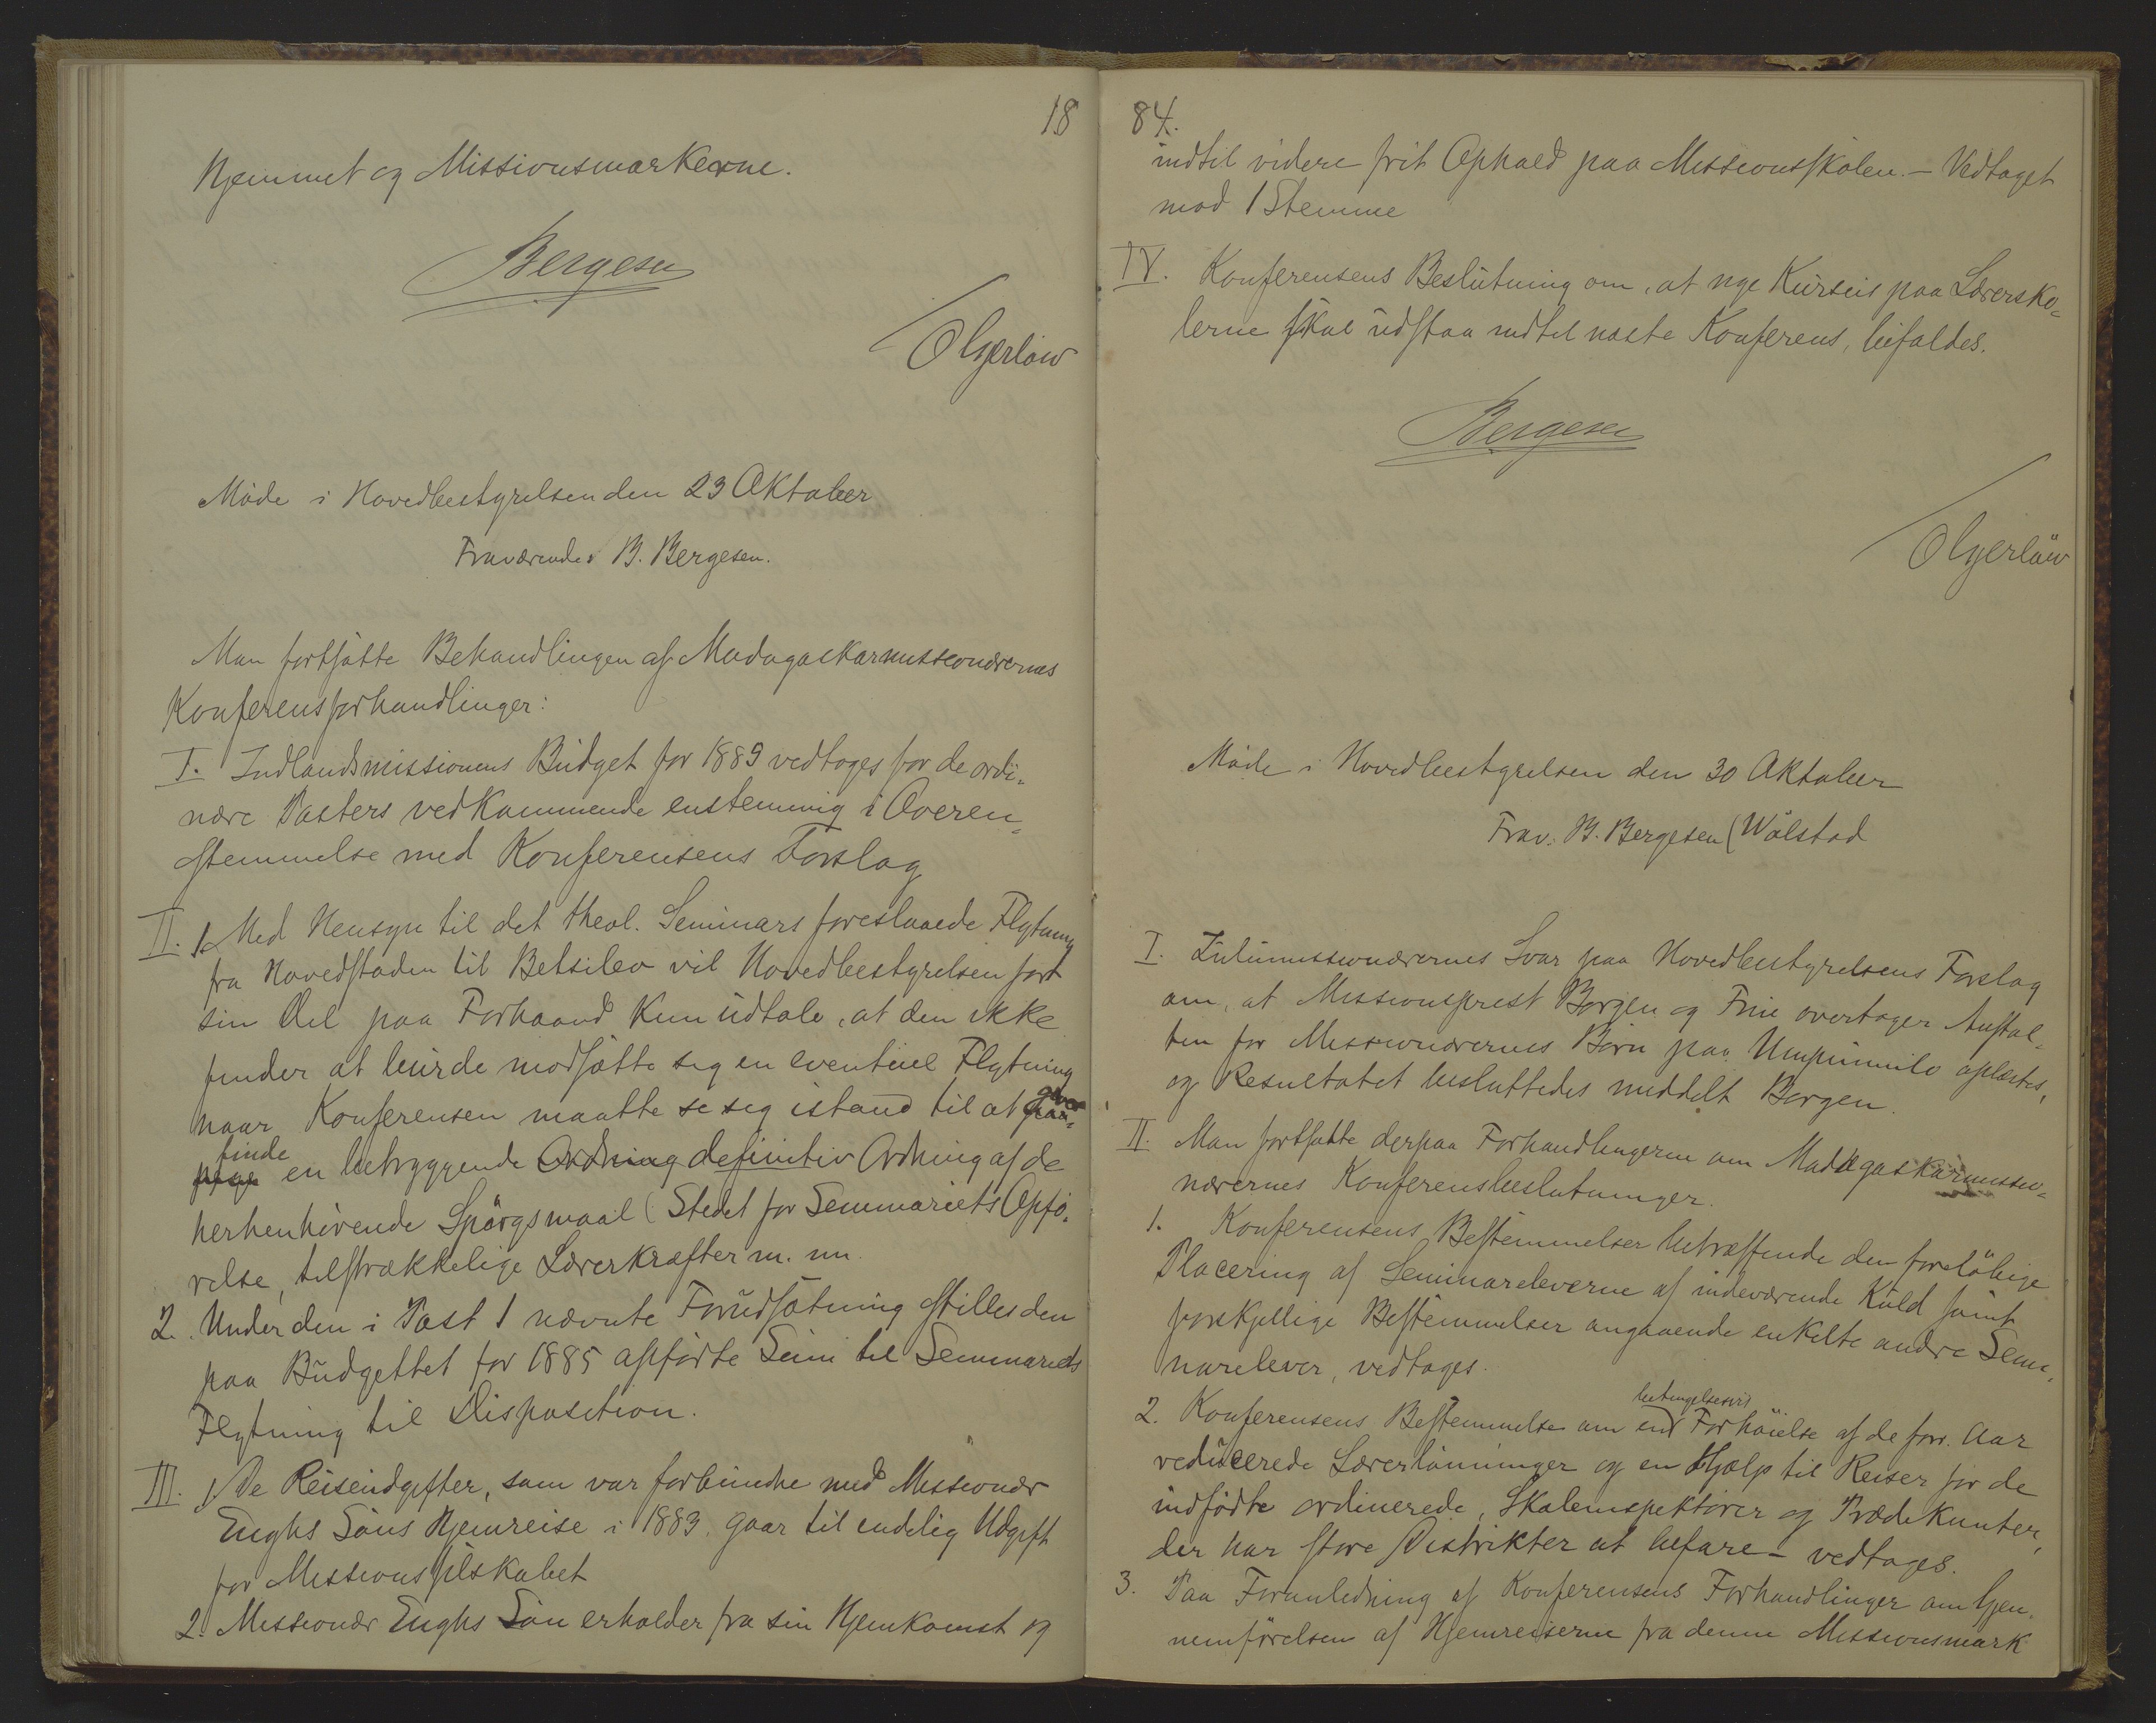 18
Hjemmet og Missionsmarkerne.
Bergesen
O Gjerløw
Møde i Hovedbestyrelsen den 23 Oktober
Fraværende: B. Bergesen.
Man fortsatte Behandlingen af Madagaskarmissionærernes
Konferensforhandlinger:
I. Indlandsmissionens Budget for 1885 vedtoges for de ordi=
nære Posters vedkommende enstemmig i Overen=
stemmelse med Konferensens Forslag
II. 1. Med Hensyn til det theol. Seminars foreslaaede Flytning
fra Hovedstaden til Betsileo vil Hovedbestyrelsen for
sin Del paa Forhaand kun udtale, at den ikke
finder at burde modsætte sig en eventuel Flytning
naar Konferensen maatte se sig istand til at
finde en betryggende Ordning definitiv Ordning af de
herhenhørende Spørgsmaal (Stedet for Seminariets Opfø=
relse, tilstrækkelige Lærerkræfter m. m.
2. Under den i Post 1 nævnte Forudsætning stilles den
paa Budgettet for 1885 opførte Sum til Seminariets
Flytning til Disposition.
III. 1. De Reiseudgifter, som var forbundne med Missionær
Enghs Søns Hjemreise i 1883. gaar til endelig Udgift
for Missionsselskabet
2. Missionær Enghs Søn erholder fra sin Hjemkomst og
84.
indtil videre frit Ophold paa Missionsskolen. – Vedtaget
mod 1 Stemme
IV. Konferensens Beslutning om, at nye Kursus paa Lærersko=
lerne skal udstaa indtil næste Konferens, bifaldes.
Bergesen
O Gjerløw
Møde i Hovedbestyrelsen den 30 Oktober
Frav. B. Bergesen (Wølstad
I. Zulumissionærernes Svar paa Hovedbestyrelsens Forslag
om, at Missionsprest Borgen og Frue overtager Anstal=
ten for Missionærernes Børn paa Umpumulo oplæstes,
og Resultatet besluttedes meddelt Borgen.
II. Man fortsatte derpaa Forhandlingerne om Madagaskarmissio=
nærernes Konferensbeslutninger.
1. Konferensens Bestemmelser betræffende den foreløbige
Placering af Seminareleverne af indeværende Kuld samt
forskjellige Bestemmelser angaaende enkelte andre Semi=
narelever, vedtoges.
2. Konferensens Bestemmelse om en betingelsesvis Forhøielse af de forr. Aar
reducerede Lærerlønninger og en Hjælp til Reiser for de
indfødte ordinerede, Skoleinspektører og Prædikanter,
der har store Distrikter at befare – vedtoges.
3. Paa Foranledning af Konferensens Forhandlinger om Gjen=
nemførelsen af Hjemreiserne fra denne Missionsmark